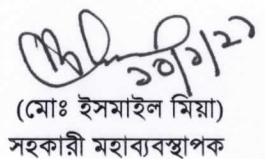 ১০/১/২১
(মোঃ ইসমাইল মিয়া)
সহকারী মহাব্যবস্থাপক